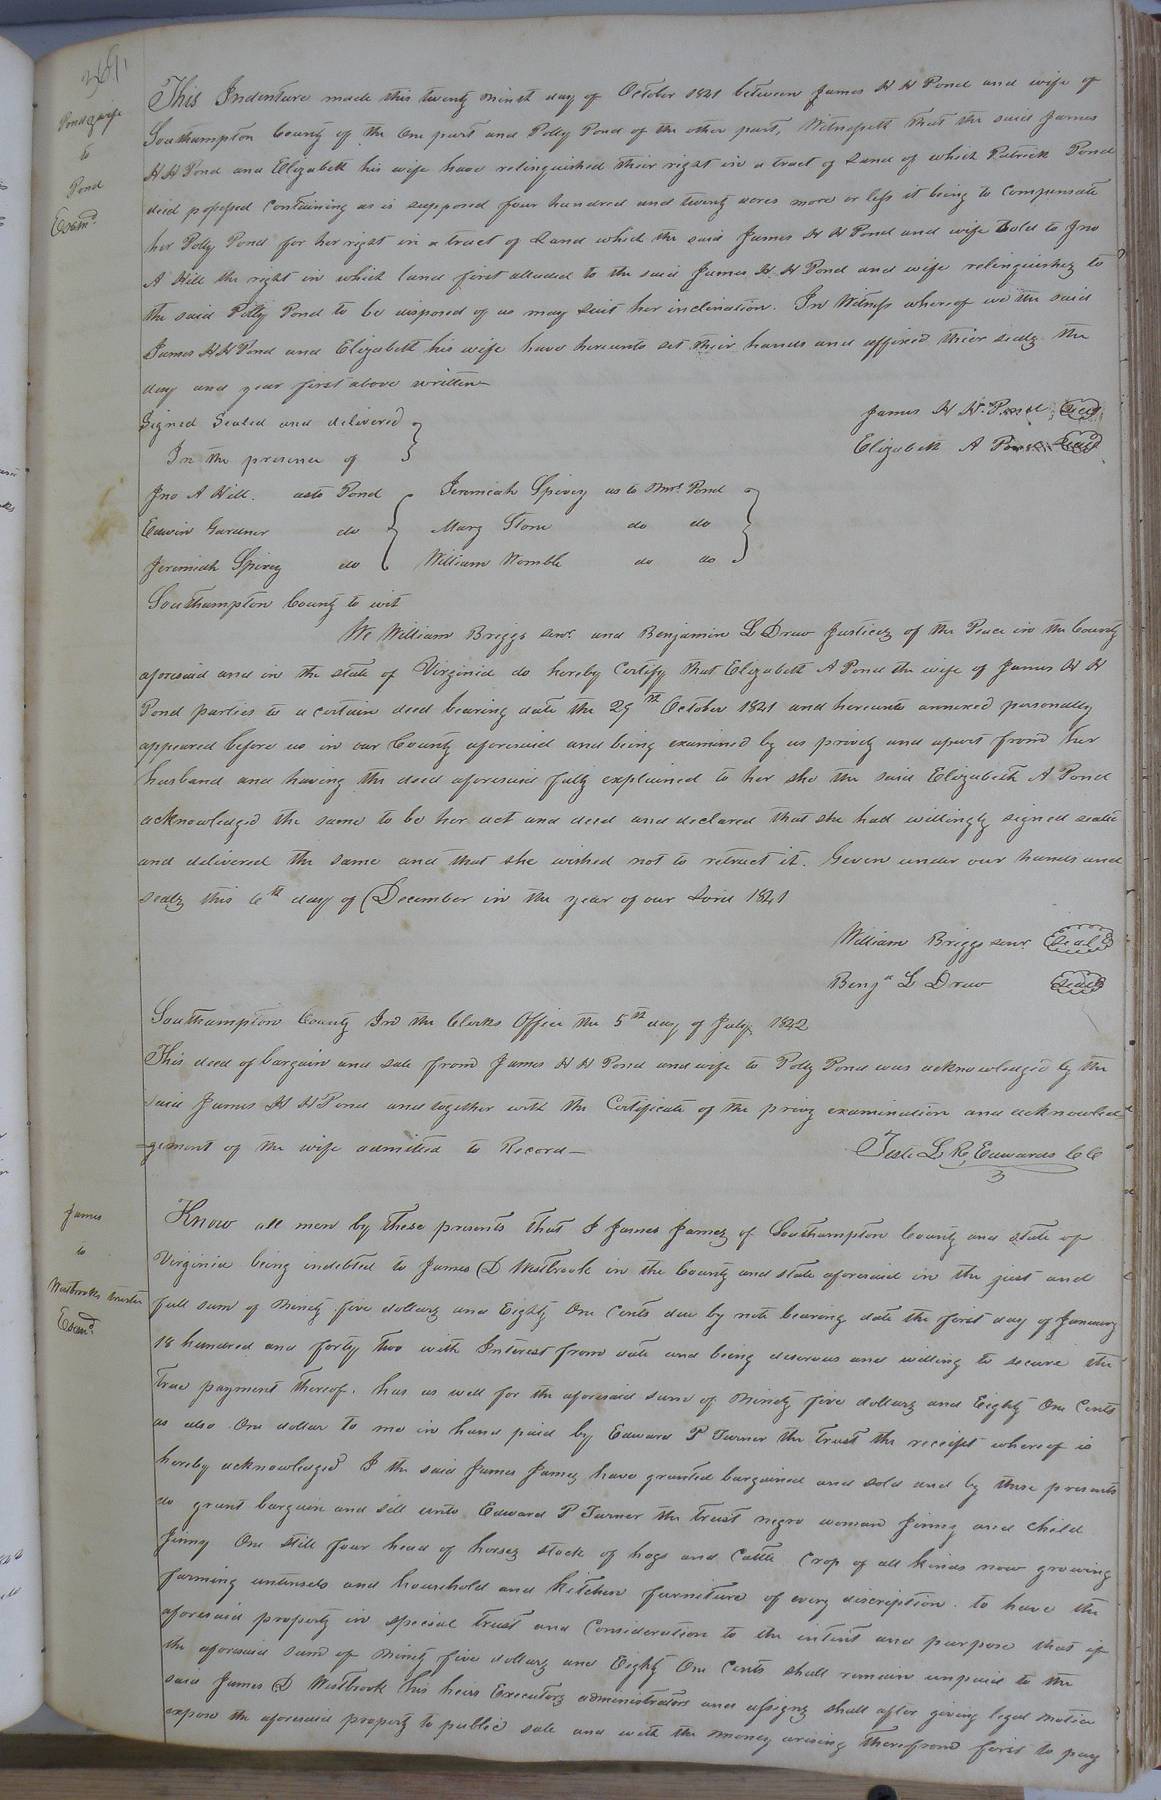 361
Pond & wife
to
Pond
Examd.
This Indenture made this twenty ninth day of October 1841 between James H H Pond and wife of
Southampton County of the One part and Polly Pond of the other part, Witnesseth that the said James
H H Pond and Elizabeth his wife have relinquished their right in a tract of Land of which Patrick Pond
died possessed containing as is supposed four hundred and twenty acres more or less it being to compensate
her Polly Pond for her right in a tract of Land which the said James H H Pond and wife Sold to Jno
A Hill the right in which land first alluded to the said James H H Pond and wife relinquishes to
the said Polly Pond to be disposed of as may suit her inclination. In Witness whereof we the said
James H H Pond and Elizabeth his wife have hereunto set their hands and affixed their seals the
day and year first above written
James H H. Pond Seal
Elizabeth A Pond Seal
Signed Sealed and delivered
In the presence of
Jno A Hill. as to Pond Jeremiah Spivey as to Mrs. Pond
Edwin Gardner do Mary Stone do do
Jeremiah Spivey do William Womble do do
Southampton County to wit
We William Briggs senr. and Benjamin L Drew Justices of the Peace in the County
aforesaid and in the state of Virginia do hereby Certify that Elizabeth A Pond the wife of James H H
Pond parties to a certain deed bearing date the 29th October 1841 and hereunto annexed personally
appeared before us in our County aforesaid and being examined by us privily and apart from her
husband and having the deed aforesaid fully explained to her she the said Elizabeth A Pond
acknowledged the same to be her act and deed and declared that she had willingly signed sealed
and delivered the same and that she wished not to retract it. Given under our hands and
seals this 6th day of December in the year of our Lord 1841
William Briggs senr. Seal
Benja L Drew Seal
Southampton County In the Clerks Office the 5th day of July 1842
This deed of bargain and sale from James H H Pond and wife to Polly Pond was acknowledged by the
said James H H Pond and together with the Certificate of the privy examination and acknowled
gement of the wife admitted to Record—
Teste L R. Edwards CC
James
to
Westbrooks trustee
Examd.
Know all men by these presents that I James James of Southampton County and state of
Virginia being indebted to James D Westbrook in the County and state aforesaid in the just and
full sum of Ninety five dollars and Eighty One Cents due by note bearing date the first day of January
18 hundred and forty two with Interest from date and being desirous and willing to secure the
true payment thereof. has as well for the aforesaid sum of Ninety five dollars and Eighty One Cents
as also One dollar to me in hand paid by Edward P Turner the trust the receipt whereof is
hereby acknowledged I the said James James have granted bargained and sold and by these presents
do grant bargain and sell unto Edward P Turner the trust negro woman Jinny and child
Jinny One still four head of horses stock of hogs and Cattle Crop of all kinds now growing
farming untensels and household and kitchen furniture of every discription. to have the
aforesaid property in special trust and Consideration to the intent and purpose that if
the aforesaid sum of Ninety five dollars and Eighty One Cents shall remain unpaid to the
said James D Westbrook his heirs Executors administrators and assigns shall after giving legal notice
expose the aforesaid property to public sale and with the money arising therefrom first to pay